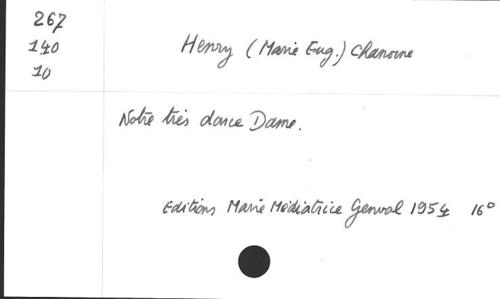 267
140
10
Henry (Marie Eug.) Chanoine
Notre très douce Dame.
Editions Marie Médiatrice Genval 1954 16°